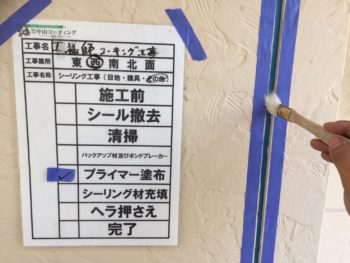 中山コーティング
工事名 工様邸 コーキング工事
工事箇所 東 西 南 北 面
工事名称 シーリング工事(目地・建具・その他)
施工前
シール撤去
清掃
バックアップ材及びボンドブレーカー
✓ プライマー塗布
シーリング材充填
ヘラ押さえ
完了